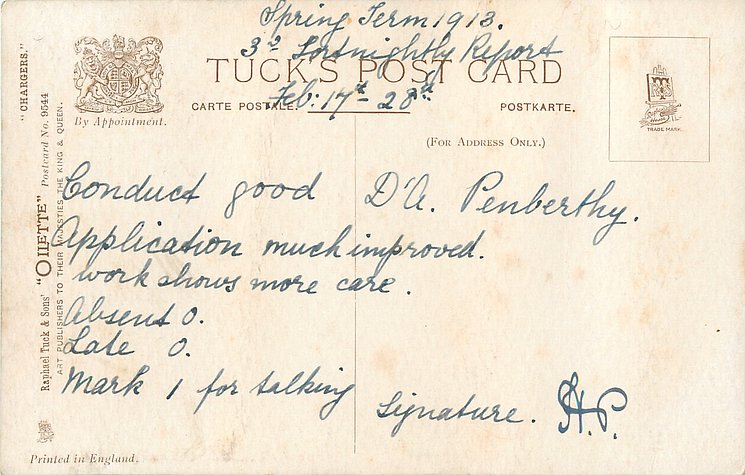 Spring Term 1913.
3rd Fortnightly Report
TUCK'S POST CARD
Feb: 17th - 28th
CARTE POSTALE.
POSTKARTE.
By Appointment.
(FOR ADDRESS ONLY.)
TRADE MARK.
"CHARGERS."
Raphael Tuck & Sons' "OILETTE" Postcard No. 9544
ART PUBLISHERS TO THEIR MAJESTIES THE KING & QUEEN.
Conduct good
D'A. Penberthy.
Application much improved.
work shows more care.
Absent 0.
Late 0.
Mark 1 for talking
Signature. H.P.
Printed in England.